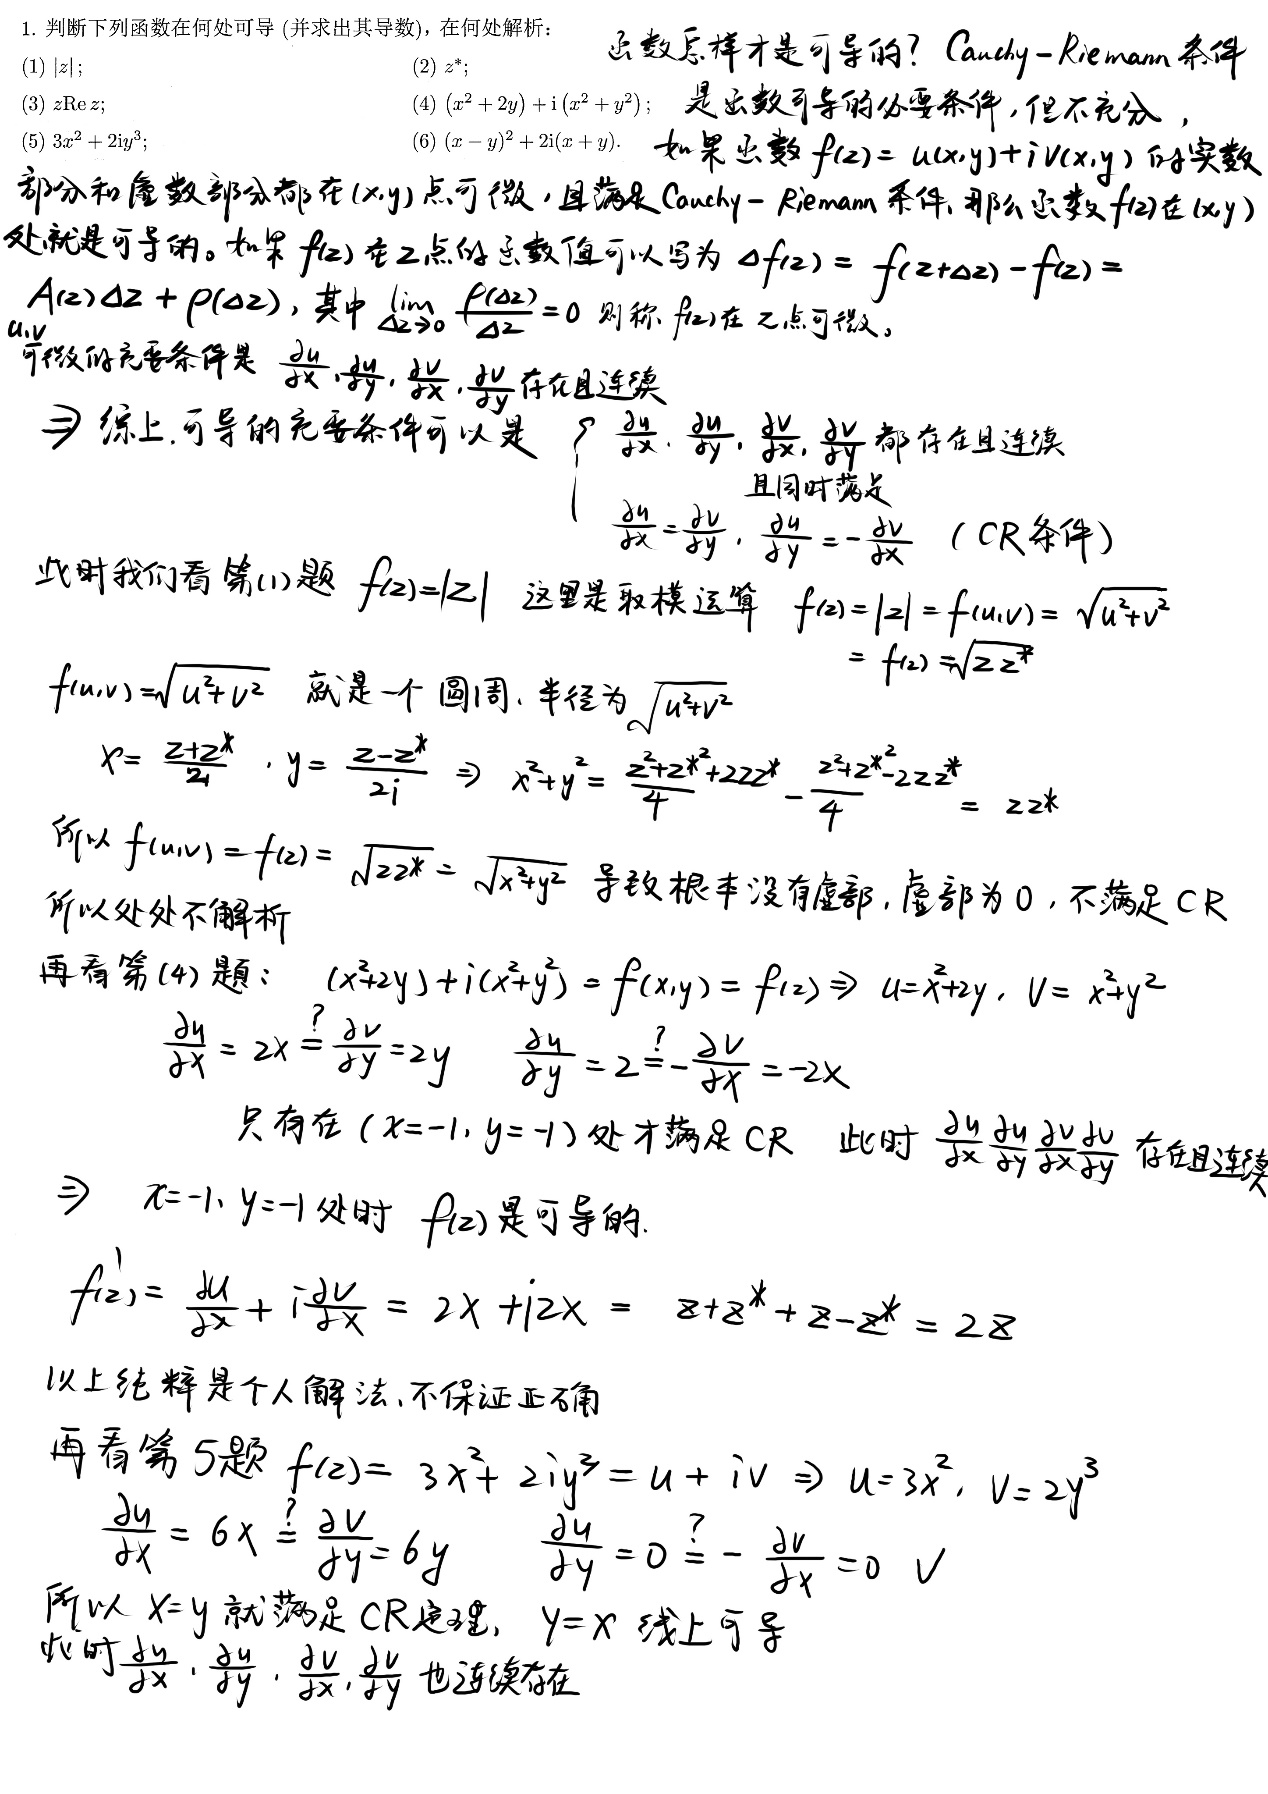 1. 判断下列函数在何处可导 (并求出其导数), 在何处解析:
(1) |z|;
(2) z*;
(3) zRe z;
(4) (x² + 2y) + i (x² + y²);
(5) 3x² + 2iy³;
(6) (x − y)² + 2i(x + y).
函数怎样才是可导的? Cauchy-Riemann 条件
是函数可导的必要条件,但不充分,
如果函数 f(z) = u(x,y)+iV(x,y) 的实数
部分和虚数部分都在(x,y)点可微,且满足 Cauchy-Riemann 条件,那么函数f(z)在(x,y)
处就是可导的。如果 f(z) 在z点的函数值可以写为 Δf(z) = f(z+Δz) - f(z) =
A(z)Δz + ρ(Δz), 其中 lim_{Δz→0} ρ(Δz)/Δz = 0 则称 f(z)在 z点可微。
u,v
可微的充要条件是 ∂u/∂x, ∂u/∂y, ∂v/∂x, ∂v/∂y 存在且连续
⇒ 综上,可导的充要条件可以是 { ∂u/∂x, ∂u/∂y, ∂v/∂x, ∂v/∂y 都存在且连续
且同时满足
∂u/∂x = ∂v/∂y, ∂u/∂y = -∂v/∂x (CR条件)
此时我们看第(1)题 f(z)=|z| 这里是取模运算 f(z) = |z| = f(u,v) = √(u²+v²)
= f(z) = √(zz*)
f(u,v)=√(u²+v²) 就是一个圆周,半径为√(u²+v²)
x = (z+z*)/2, y = (z-z*)/2i ⇒ x²+y² = (z²+z*²+2zz*)/4 - (z²+z*²-2zz*)/4 = zz*
所以 f(u,v) = f(z) = √(zz*) = √(x²+y²) 导致根本没有虚部,虚部为0,不满足CR
所以处处不解析
再看第(4)题: (x²+2y)+i(x²+y²) = f(x,y) = f(z) ⇒ u=x²+2y, V = x²+y²
∂u/∂x = 2x ?= ∂v/∂y = 2y ∂u/∂y = 2 ?= -∂v/∂x = -2x
只有在 (x=-1, y=-1) 处才满足CR 此时 ∂u/∂x ∂u/∂y ∂v/∂x ∂v/∂y 存在且连续
⇒ x=-1, y=-1 处时 f(z) 是可导的.
f'(z) = ∂u/∂x + i∂v/∂x = 2x + i2x = z+z* + z-z* = 2z
以上纯粹是个人解法,不保证正确
再看第5题 f(z) = 3x² + 2iy³ = u + iv ⇒ u=3x², V=2y³
∂u/∂x = 6x ?= ∂v/∂y = 6y ∂u/∂y = 0 ?= -∂v/∂x = 0 √
所以 x=y 就满足CR定理, y=x 线上可导
此时 ∂u/∂x, ∂u/∂y, ∂v/∂x, ∂v/∂y 也连续存在